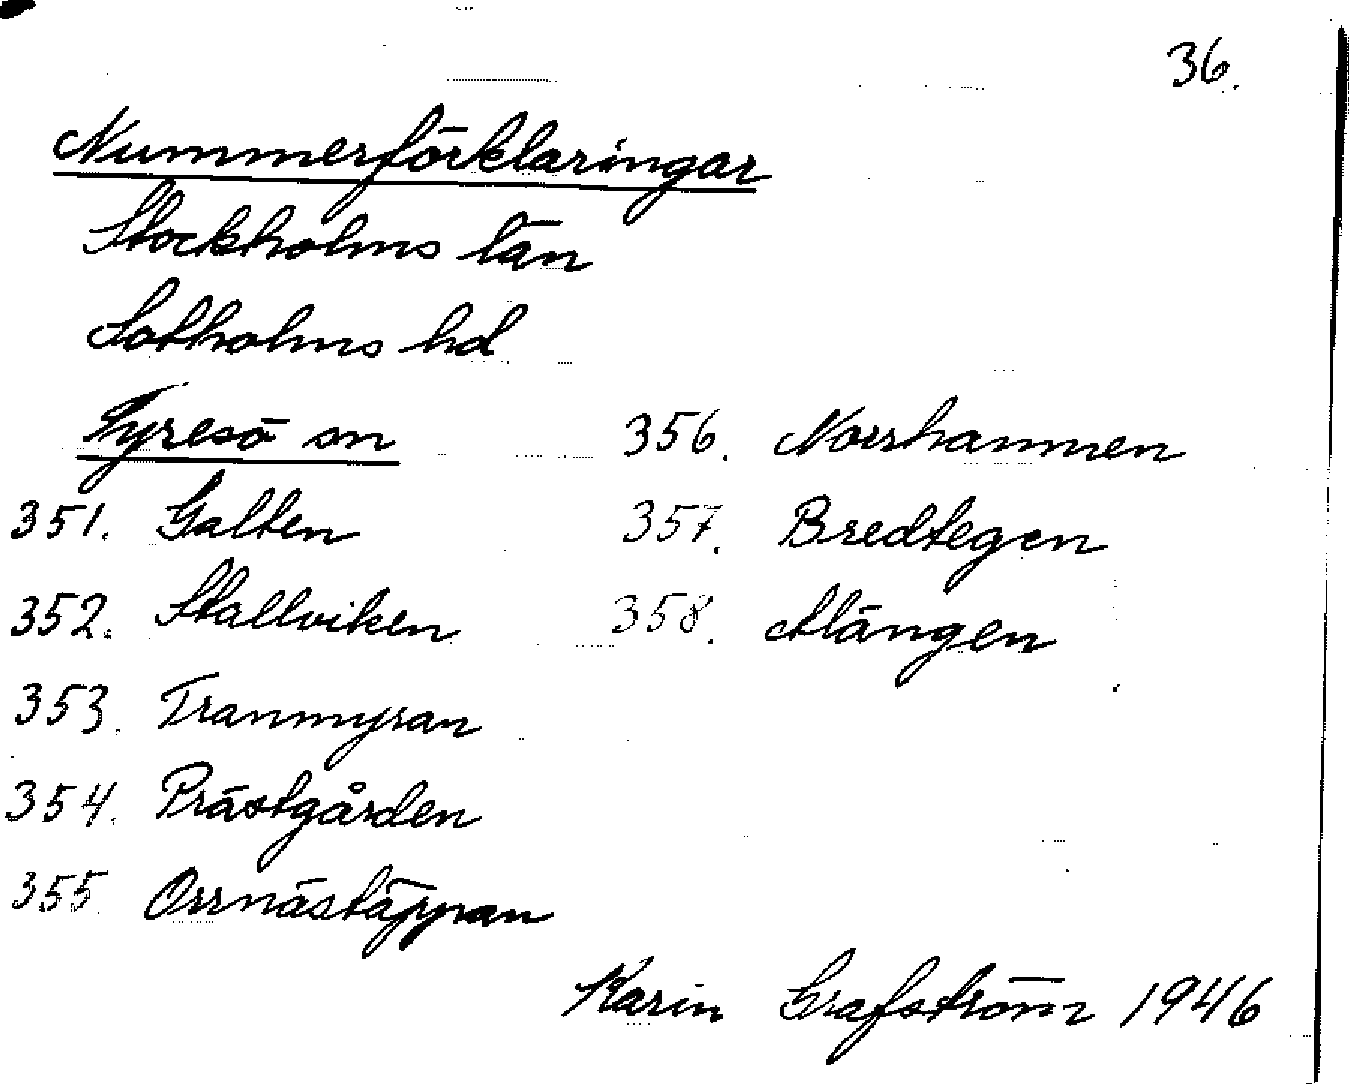 36.
Nummerförklaringar
Stockholms län
Sotholms hd
Tyresö sn
351. Galten
352. Stallviken
353. Tranmyran
354. Prästgården
355 Orrnästäppan
356. Norrhamnen
357. Bredtegen
358. Alängen
Karin Grafström 1946